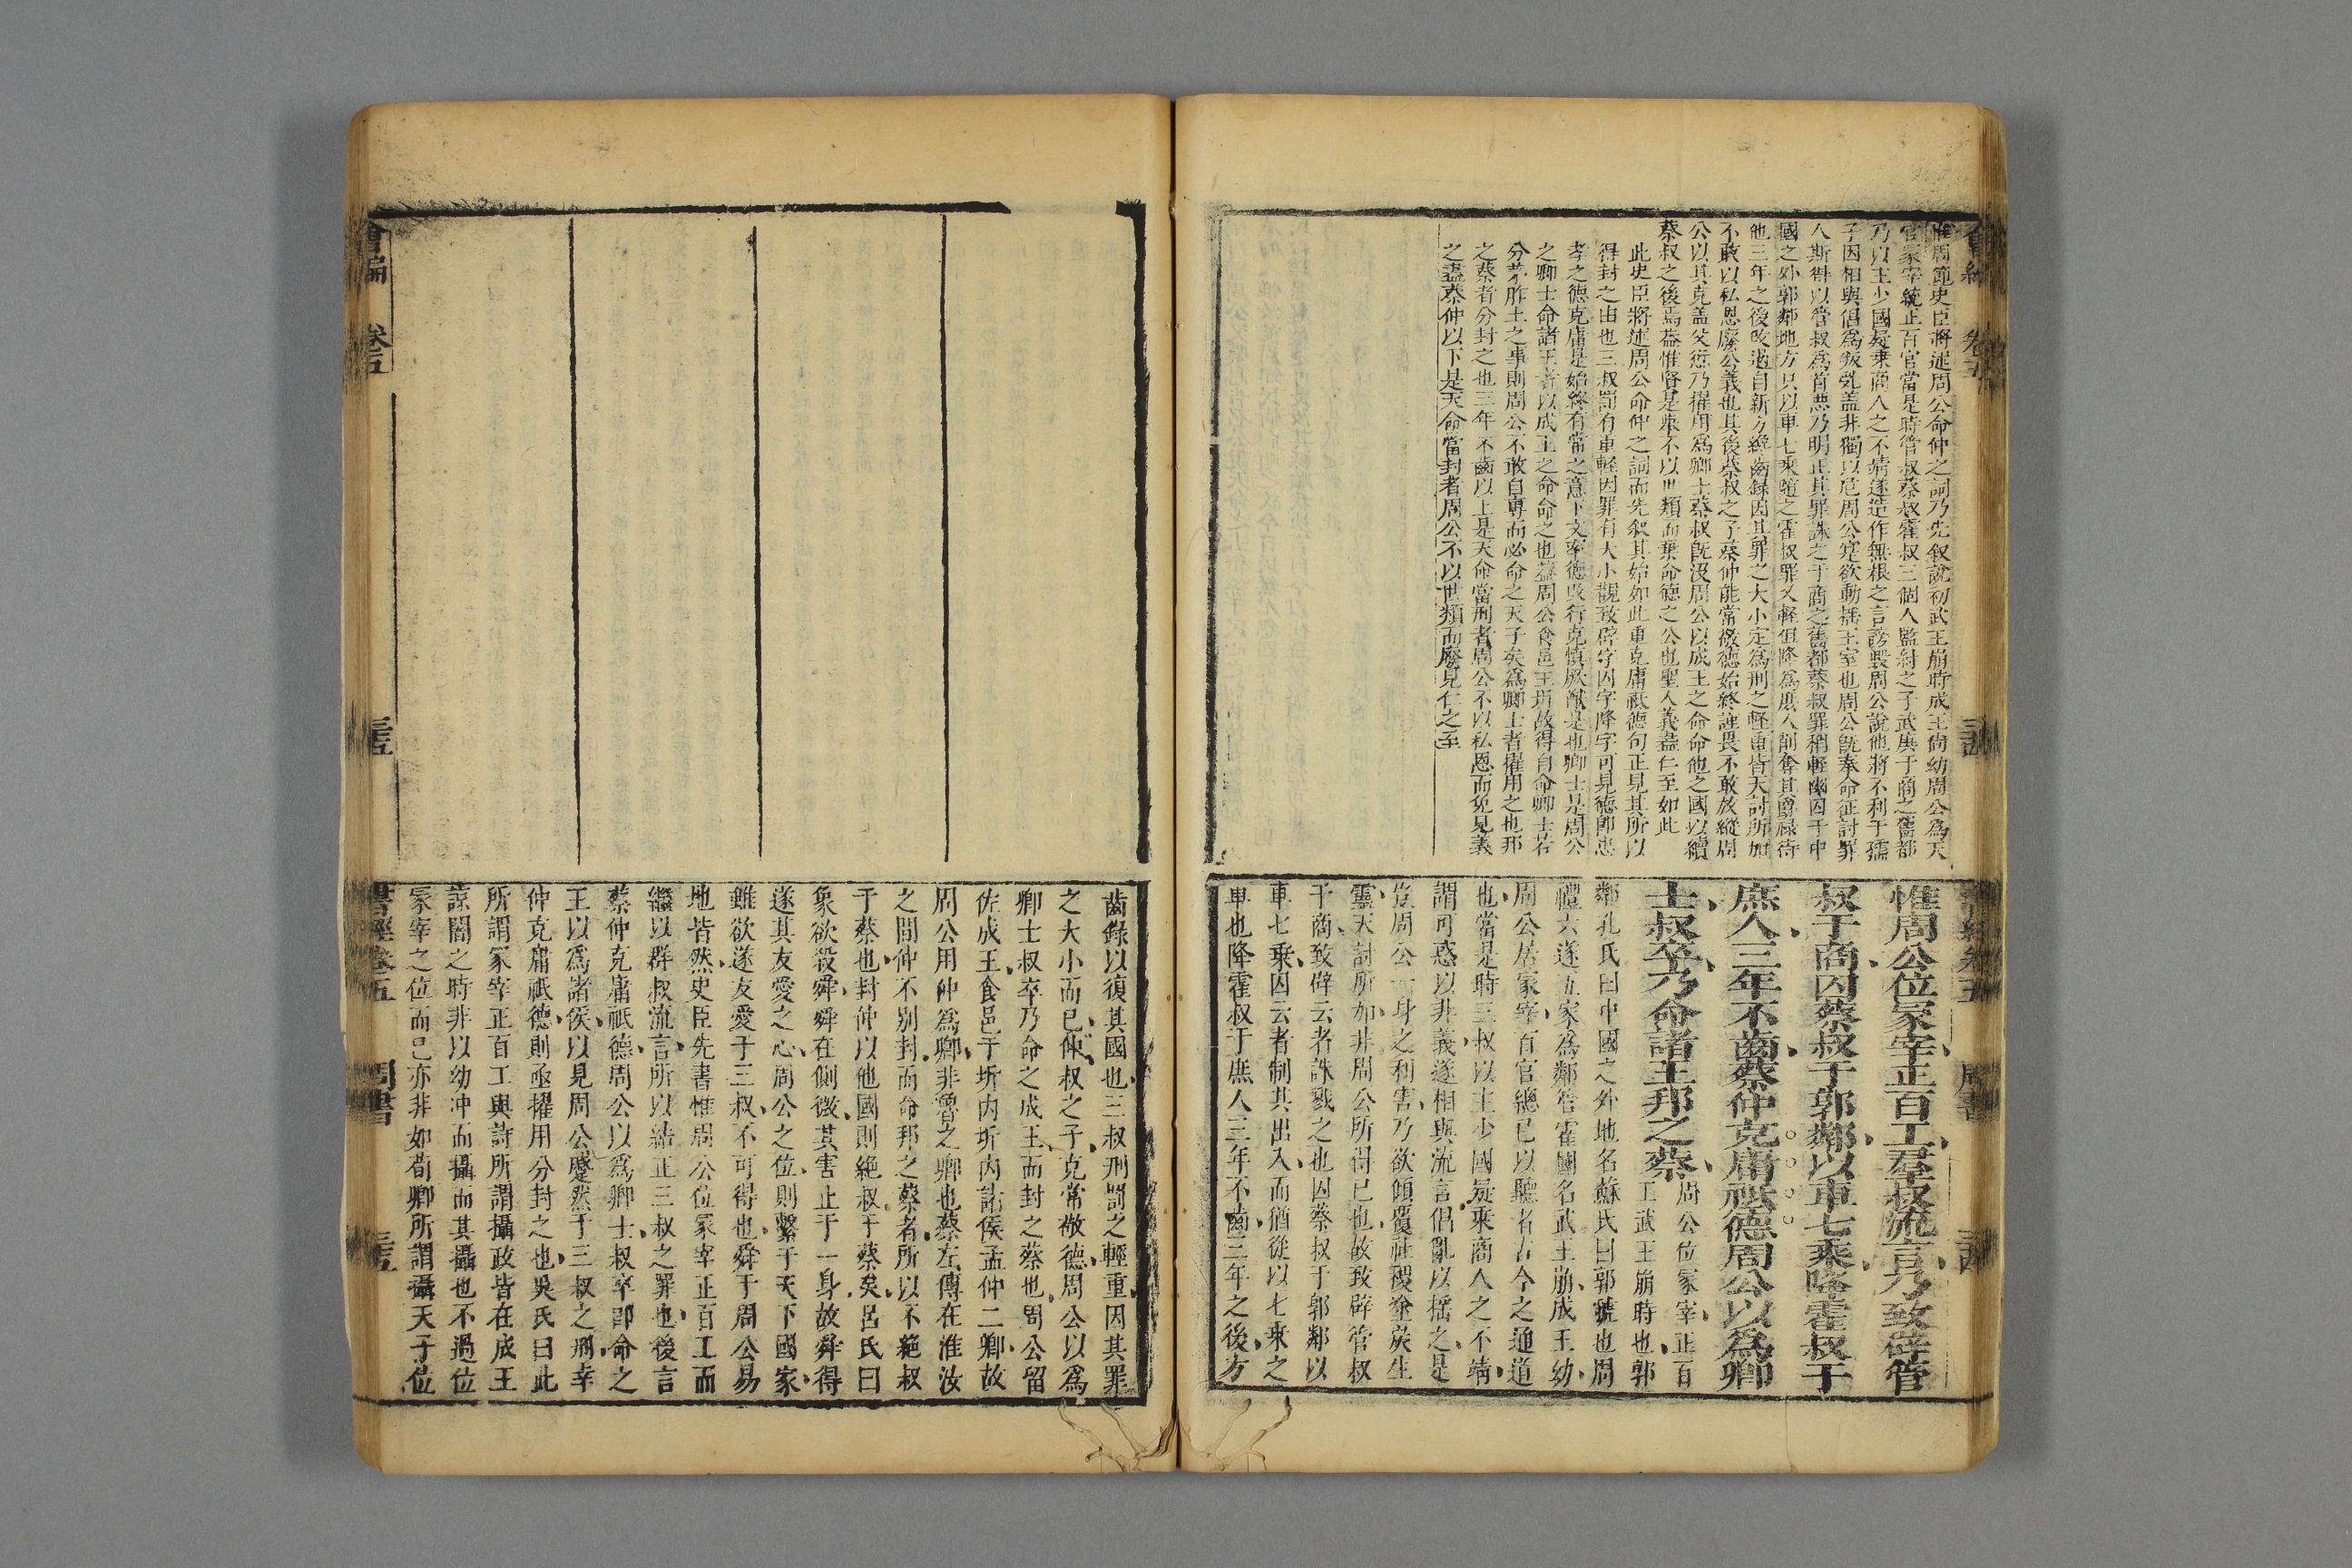 惟周節史臣將述周公命仲之詞乃先叙說初武王崩時成王尙幼周公為天
官冡宰統正百官當是時管叔蔡叔霍叔三個人監紂之子武庚于商之舊都
乃以主少國疑乗商人之不靖遂造作無根之言謗毀周公說他將不利于孺
子因相與倡為叛亂蓋非獨以危周公寔欲動揺王室也周公旣奉命征討罪
人斯得以管叔為首惡乃明正其罪誅之于商之舊都蔡叔罪稍輕幽囚于中
國之外郭鄰地方只以車七乗隨之霍叔罪又輕但降為庶人削奪其爵祿待
他三年之後改過自新方纔齒録因其罪之大小定為刑之輕重皆天討所加
不敢以私恩廢公義也其後蔡叔之子蔡仲能常敬德始終謹畏不敢放縱周
公以其克盖父愆乃擢用為卿士蔡叔旣沒周公以成王之命命他之國以續
蔡叔之後焉葢惟賢是舉不以世類而棄命德之公也聖人義盡仁至如此
此史臣將述周公命仲之詞而先叙其始如此重克庸祗德句正見其所以
得封之由也三叔罰有重輕因罪有大小觀致辟字囚字降字可見德卽忠
孝之德克庸是始終有常之意下文率德改行克慎厥猷是也卿士是周公
之卿士命諸王者以成王之命命之也葢周公食邑王圻故得自命卿士若
分茅胙土之事則周公不敢自專而必命之天子矣為卿士者擢用之也邦
之蔡者分封之也三年不齒以上是天命當刑者周公不以私恩而免見義
之盡蔡仲以下是天命當封者周公不以世類而廢見仁之至
惟周公位冡宰正百工羣叔流言乃致辟管
叔于商囚蔡叔于郭鄰以車七乗降霍叔于
庶人三年不齒蔡仲克庸祗德周公以為卿
士叔卒乃命諸王邦之蔡
周公位冡宰正百
工武王崩時也郭
鄰孔氏曰中國之外地名蘇氏曰郭虢也周
禮六遂五家為鄰管霍國名武王崩成王幼
周公居冡宰百官總已以聽者古今之通道
也當是時三叔以主少國疑乗商人之不靖
謂可惑以非義遂相與流言倡亂以揺之是
豈周公一身之利害乃欲傾覆社稷塗炭生
靈天討所加非周公所得已也故致辟管叔
于商致辟云者誅戮之也囚蔡叔于郭鄰以
車七乗囚云者制其出入而猶從以七乗之
車也降霍叔于庶人三年不齒三年之後方
齒錄以復其國也三叔刑罰之輕重因其罪
之大小而已仲叔之子克常敬德周公以為
卿士叔卒乃命之成王而封之蔡也周公留
佐成王食邑于圻内圻内諸侯孟仲二卿故
周公用仲為卿非魯之卿也蔡左傳在淮汝
之間仲不别封而命邦之蔡者所以不絶叔
于蔡也封仲以他國則絶叔于蔡矣呂氏曰
象欲殺舜舜在側微其害止于一身故舜得
遂其友愛之心周公之位則繫于天下國家
雖欲遂友愛于三叔不可得也舜于周公易
地皆然史臣先書惟周公位冡宰正百工而
繼以群叔流言所以結正三叔之罪也後言
蔡仲克庸祗德周公以為卿士叔卒卽命之
王以為諸侯以見周公蹙然于三叔之刑幸
仲克庸祗德則亟擢用分封之也吳氏曰此
所謂冡宰正百工與詩所謂攝政皆在成王
諒闇之時非以幼冲而攝而其攝也不過位
冡宰之位而已亦非如荀卿所謂攝天子位
會編 卷五 三五
書經卷五 周書 三五